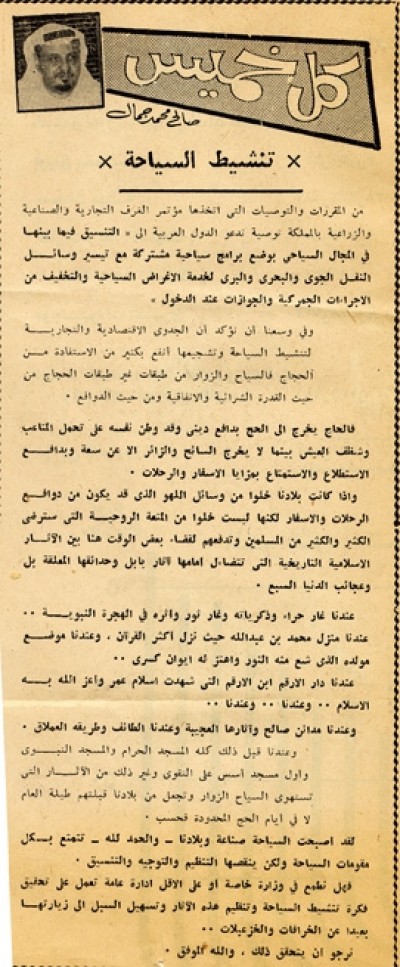 كل خميس
صالح محمد جمال
× تنشيط السياحة ×
من المقررات والتوصيات التى اتخذها مؤتمر الغرف التجارية والصناعية
والزراعية بالمملكة توصية تدعو الدول العربية الى « التنسيق فيما بينها
في المجال السياحى بوضع برامج سياحية مشتركة مع تيسير وسائل
النقل الجوى والبحرى والبرى لخدمة الاغراض السياحية والتخفيف من
الاجراءات الجمركية والجوازات عند الدخول »
وفي وسعنا أن نؤكد أن الجدوى الاقتصادية والتجارية
لتنشيط السياحة وتشجيعها أنفع بكثير من الاستفادة من
الحجاج فالسياح والزوار من طبقات غير طبقات الحجاج من
حيث القدرة الشرائية والانفاقية ومن حيث الدوافع .
فالحاج يخرج الى الحج بدافع دينى وقد وطن نفسه على تحمل المتاعب
وشظف العيش بينما لا يخرج السائح والزائر الا عن سعة وبدافع
الاستطلاع والاستمتاع بمزايا الاسفار والرحلات .
واذا كانت بلادنا خلوا من وسائل اللهو الذى قد يكون من دوافع
الرحلات والاسفار لكنها ليست خلوا من المتعة الروحية التى سترضى
الكثير والكثير من المسلمين وتدفعهم لقضاء بعض الوقت هنا بين الآثار
الاسلامية التاريخية التى تتضاءل امامها آثار بابل وحدائقها المعلقة بل
وعجائب الدنيا السبع .
عندنا غار حراء وذكرياته وغار ثور واثره في الهجرة النبوية ..
عندنا منزل محمد بن عبدالله حيث نزل أكثر القرآن ، وعندنا موضع
مولده الذى شع منه النور واهتز له ايوان كسرى ..
عندنا دار الارقم ابن الارقم التى شهدت اسلام عمر واعز الله به
الاسلام .. وعندنا .. وعندنا ..
وعندنا مدائن صالح وآثارها العجيبة وعندنا الطائف وطريقه العملاق .
وعندنا قبل ذلك كله المسجد الحرام والمسجد النبوى
واول مسجد أسس على التقوى وغير ذلك من الآثار التى
تستهوى السياح الزوار وتجعل من بلادنا قبلتهم طيلة العام
لا في أيام الحج المحدودة فحسب .
لقد اصبحت السياحة صناعة وبلادنا ــ والحمد لله ــ تتمتع بكل
مقومات السياحة ولكن ينقصها التنظيم والتوجيه والتنسيق .
فهل نطمع في وزارة خاصة او على الاقل ادارة عامة تعمل على تحقيق
فكرة تنشيط السياحة وتنظيم هذه الآثار وتسهيل السبل الى زيارتها
بعيدا عن الخرافات والخزعبلات ..
نرجو ان يتحقق ذلك ، والله الموفق .